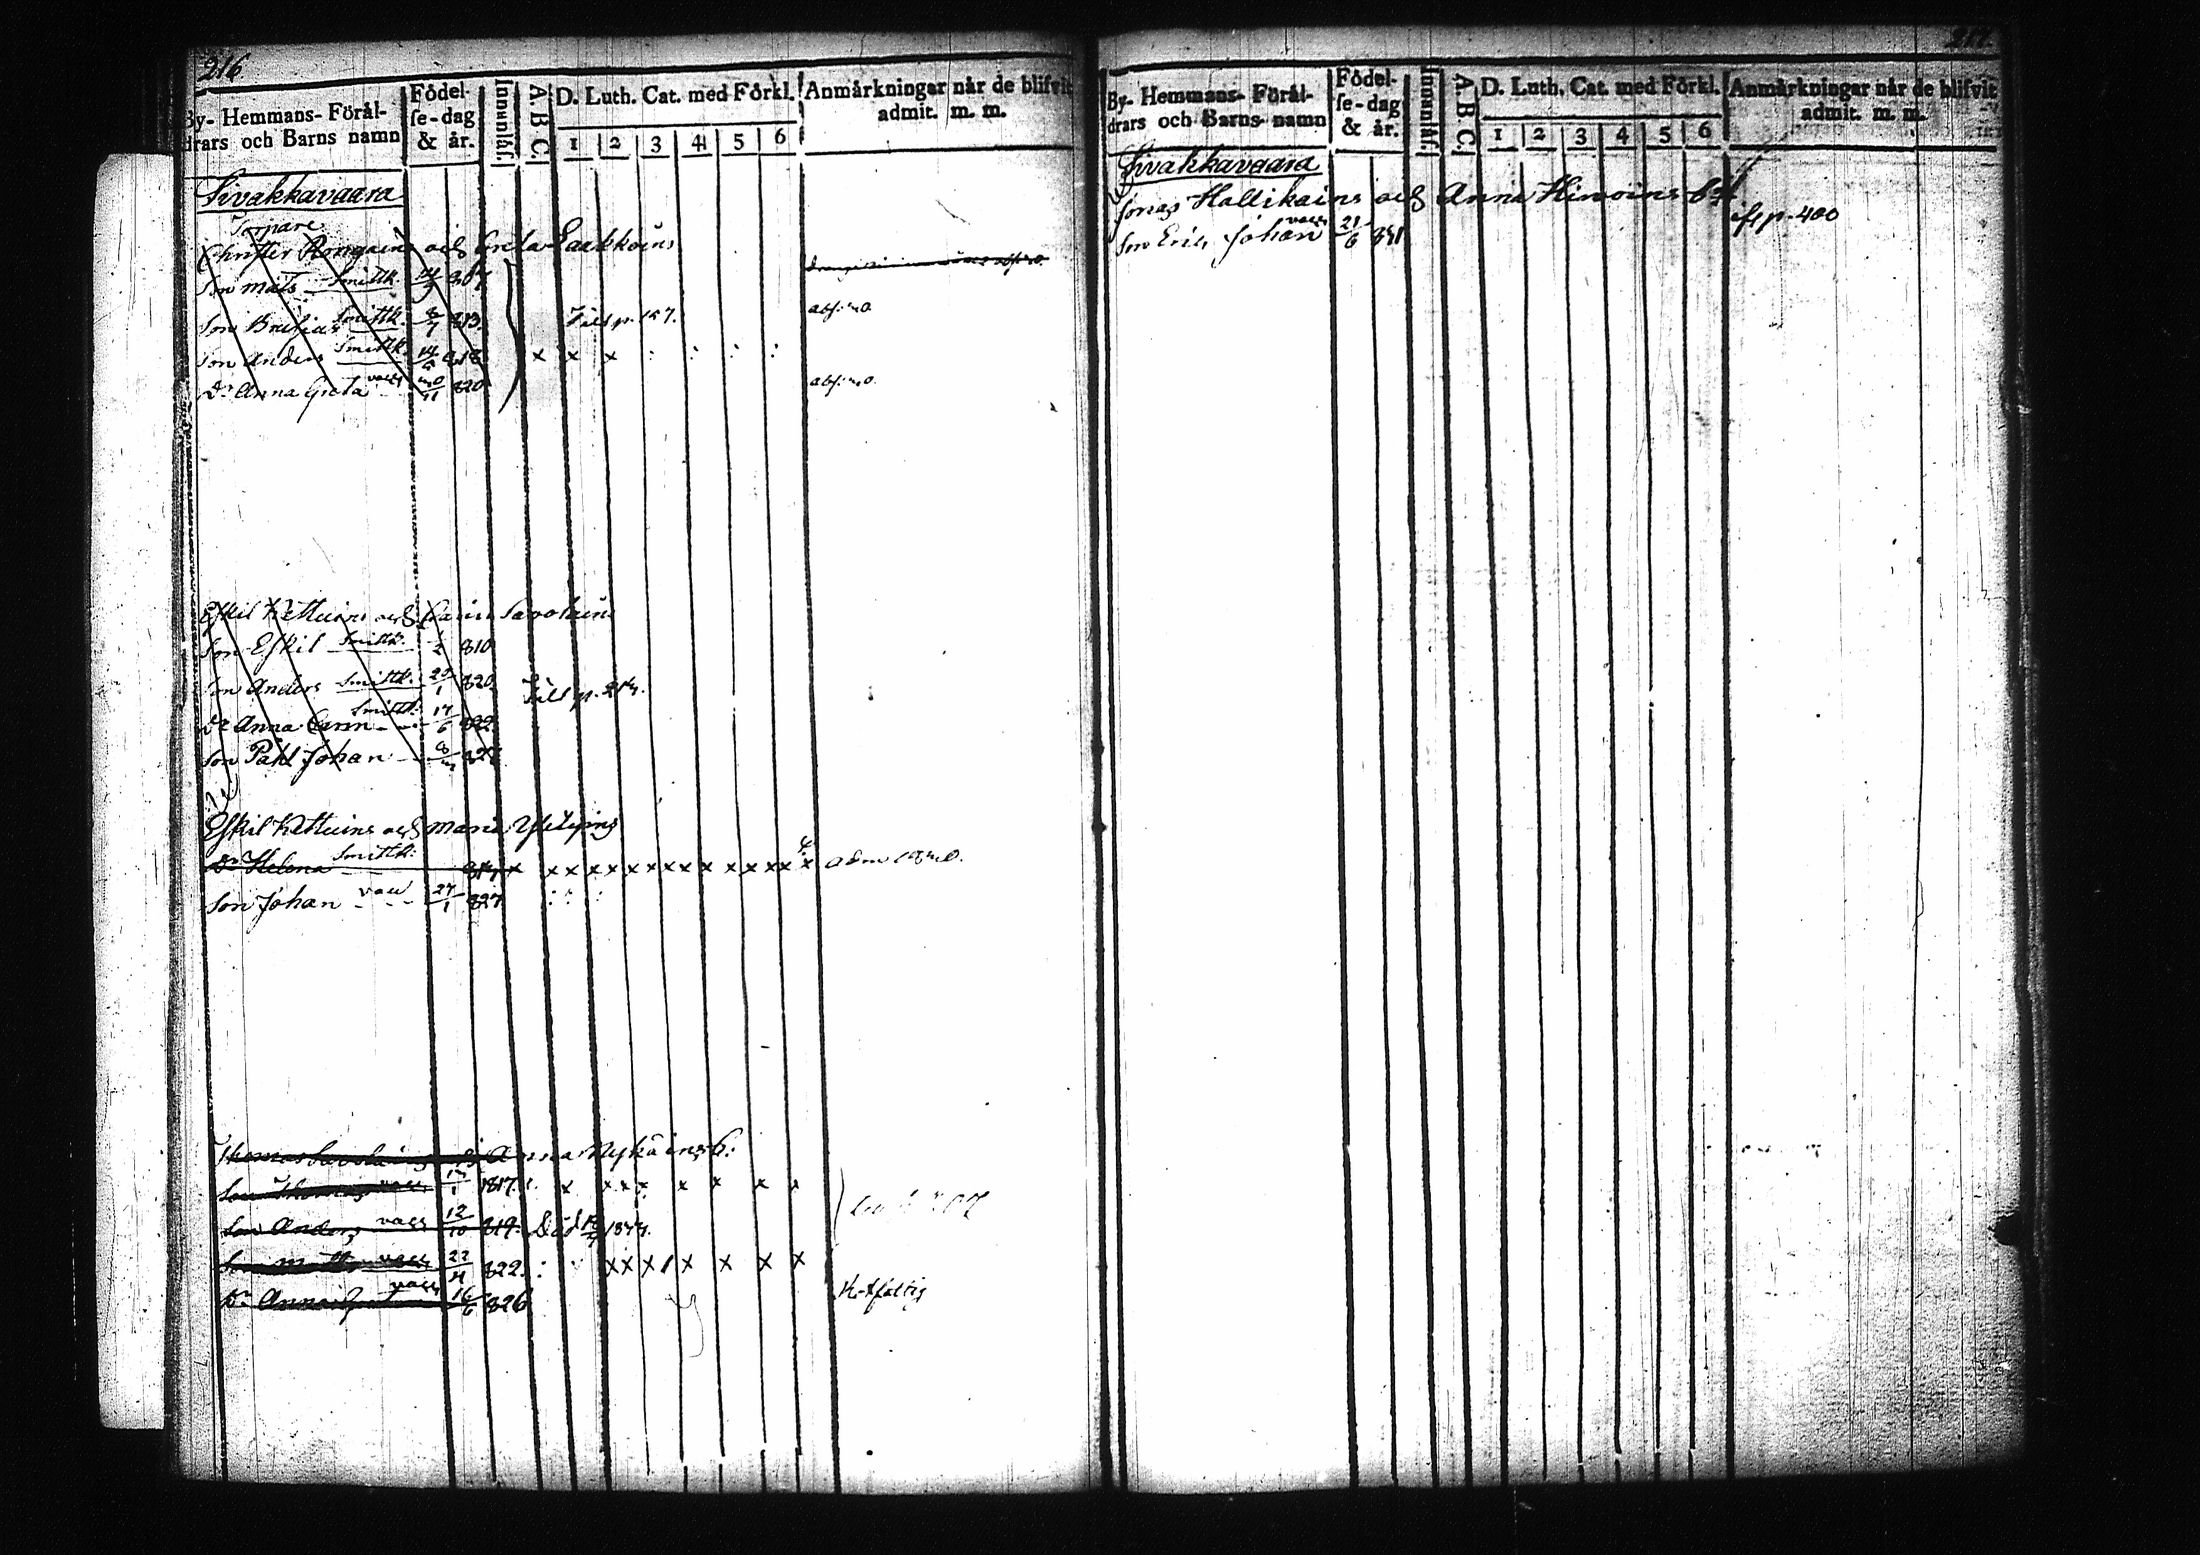 216
By- Hemmans- Föräl-
drars och Barns namn
Födel-
se-dag
& år.
Innanläs.
A. B. C.
D. Luth. Cat. med Förkl.
1 2 3 4 5 6
Anmärkningar når de blifvit
admit. m. m.
Sivakkavaara
Torpare
Christer Rongains och Greta Laakkoins
Son Mats Smittk. 807
Son Smittk. 8/7 813. Till p. 157.
Son Anders Smittk. 14 818 x x x
Dr Anna Greta vacc 11 820
Eskil Kettuins och Carin Savolains
Son Eskil Smittk. 2 810
Son Anders Smittk. 29/1 820 Till p. 214.
Dr Anna Carin Smittk. 17/6 822.
Son Påhl Johan 8
Eskil Kettuins och Maria
Dr Helena Smittk: x x x x x x x x x x x x x x adm
Son Johan vacc 27/1 827
Thomas Anna Nykäins b:
Son Thomas vacc 1 1817. x x x x x x x x
Son Anders vacc 12/10 819. Död
Son vacc 22 822. x x x x x x x
Dr Anna vacc 16/6 826
217
By- Hemmans- Föräl-
drars och Barns namn
Födel-
se-dag
& år.
Innanläs.
A. B. C.
D. Luth. Cat. med Förkl.
1 2 3 4 5 6
Anmärkningar når de blifvit
admit. m. m.
Sivakkavaara
Jonas Hallikains och Anna Hiwoins
p. 400
Son Eric Johan vacc 21/6 831